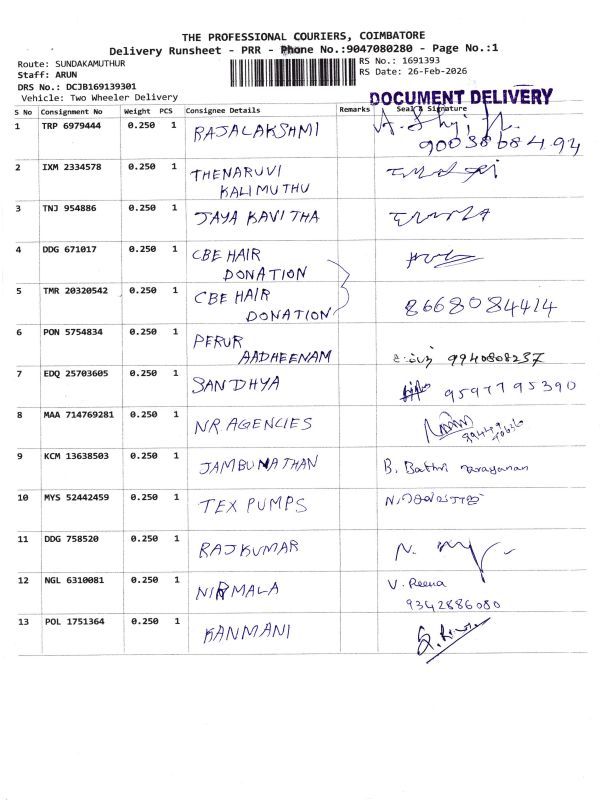 THE PROFESSIONAL COURIERS, COIMBATORE
Delivery Runsheet - PRR - Phone No.:9047080280 - Page No.:1
Route: SUNDAKAMUTHUR
Staff: ARUN
DRS No.: DCJB169139301
Vehicle: Two Wheeler Delivery
RS No.: 1691393
RS Date: 26-Feb-2026
DOCUMENT DELIVERY
S No Consignment No Weight PCS Consignee Details Remarks Seal & Signature
1 TRP 6979444 0.250 1 RAJALAKSHMI
9003868494
2 IXM 2334578 0.250 1 THENARUVI
KALIMUTHU
3 TNJ 954886 0.250 1 JAYA KAVITHA
4 DDG 671017 0.250 1 CBE HAIR
DONATION
5 TMR 20320542 0.250 1 CBE HAIR
DONATION 8668084414
6 PON 5754834 0.250 1 PERUR
AADHEENAM 9940808237
7 EDQ 25703605 0.250 1 SANDHYA 9597795390
8 MAA 714769281 0.250 1 NR AGENCIES
9 KCM 13638503 0.250 1 JAMBUNATHAN B. Bathri narayanan
10 MYS 52442459 0.250 1 TEX PUMPS
11 DDG 758520 0.250 1 RAJKUMAR
12 NGL 6310081 0.250 1 NIRMALA V. Reena
9342886080
13 POL 1751364 0.250 1 KANMANI